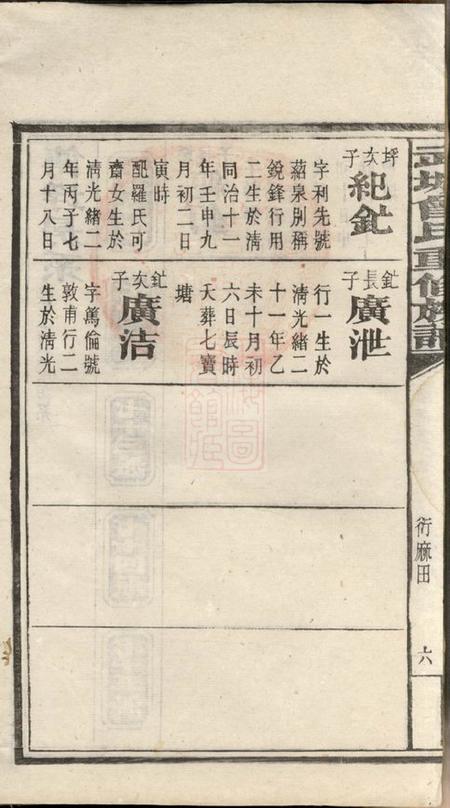 武城曾氏重修族譜
衍麻田
六
坪次子
紀釓
字利先號
蕌泉別稱
銳鋒行用
二生於清
同治十一
年壬申九
月初二日
寅時
配羅氏可
齋女生於
清光緒二
年丙子七
月十八日
釓長子
廣泄
行一生於
清光緒二
十一年乙
未十月初
六日辰時
夭葬七寶
塘
釓次子
廣洁
字篤倫號
敦甫行二
生於清光